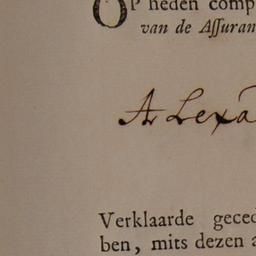 Op heden comp
van de Aſſuran
A Lexa
Verklaarde geced
ben, mits dezen a